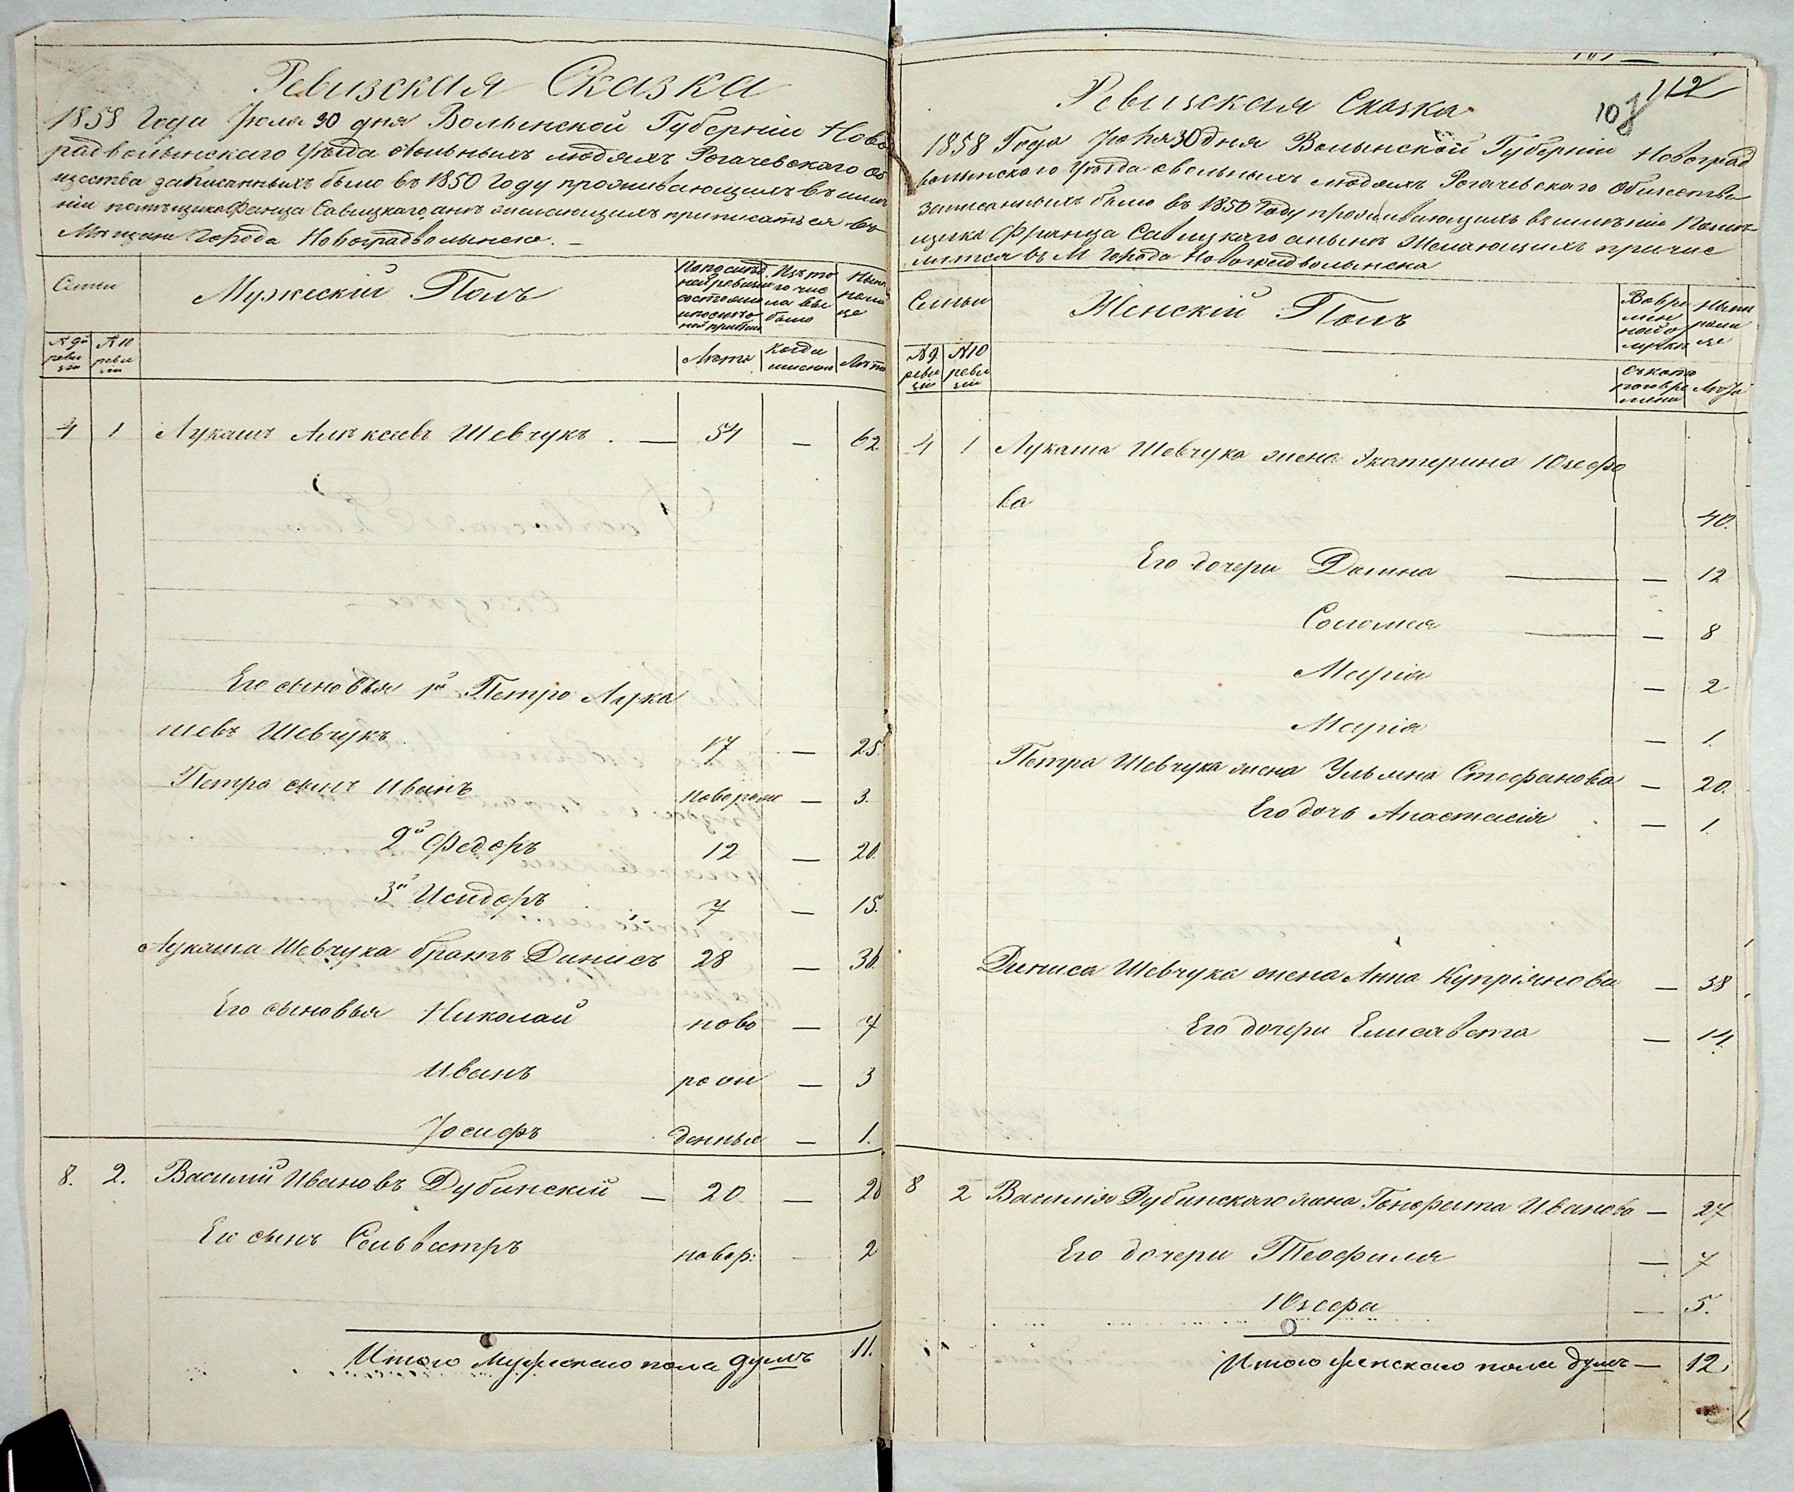 Ревизская Сказка
1858 Года Июля 30 дня Волынской Губерніи Ново
радволынскаго Уѣзда овольныхъ людяхъ Рогачевскаго об
щества записанныхъ было въ 1850 году проживающихъ въ имѣ
ніи помѣщика Франца Савицкаго анынѣ желающихъ приписаться въ
Мѣщане Города Новоградволынска. —
Семьи
Мужескій Полъ
По послѣд
ней ревизіи
состояло
и послѣ о
ной прибыло
Изъ то
го чис
ла вы
было
Нынѣ
на ли
це
№ 9й
реви
зіи
№ 10
реви
зіи
Лѣта
Когда
именно
Лѣта
4 1 Лукашъ Алексѣевъ Шевчукъ. — 54 — 62
Его сыновья 1й Петро Лука
шевъ Шевчукъ 17 — 25.
Петра сынъ Иванъ новорож — 3.
2й Федоръ 12 — 20.
3й Исидоръ 7 — 15.
Лукаша Шевчука братъ Динисъ 28 — 36.
Его сыновья Николай ново — 7
Иванъ рож — 3
Іосифъ денные — 1.
8. 2. Василий Ивановъ Дубинскій — 20. — 28
Его сынъ Сельвестръ новор: — 2
Итого Мужескаго пола душъ 11.
112
108
Ревизская Сказка
1858 Года Июля 30 дня Волынской Губерніи Новоград
волынского Уѣзда овольныхъ людяхъ Рогачевскаго Общества
записанныхъ было въ 1850 Году проживающихъ въ имѣніи Помѣ
щика Франца Савицкаго анынѣ Желающихъ причис
лится въ М Города Новоградволынска
Семьи
Женскій Полъ
Вовре
мен
ной о
лучки
Нынѣ
на ли
це
№ 9
реви
зіи
№ 10
реви
зіи
Съ кото
раго вре
мени
Лѣта
4 1 Лукаша Шевчука жена Екатерина Юзефо
ва 40.
Его дочери Домина — — 12
Соломея — — 8
Марія — 2
Марія — 1.
Петра Шевчука жена Ульяна Стефанова — 20.
Его дочь Анастасія — 1.
Диниса Шевчука жена Анна Купріянова — 38
Его дочери Елисавета — 14.
8 2 Василія Дубинскаго жена Гонората Иванова — 27
Его дочери Теофиля — 7
Юзефа — 5.
Итого женскаго пола душъ — 12.